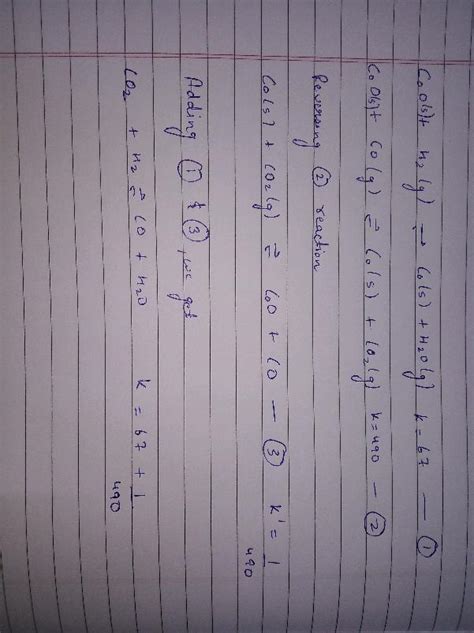 CoO(s) + H₂(g) ⇌ Co(s) + H₂O(g) K = 67 — ①
CoO(s) + CO(g) ⇌ Co(s) + CO₂(g) K = 490 — ②
Reversing ② reaction
Co(s) + CO₂(g) ⇌ CoO + CO — ③ K' = 1/490
Adding ① & ③, we get
CO₂ + H₂ ⇌ CO + H₂O K = 67 + 1/490